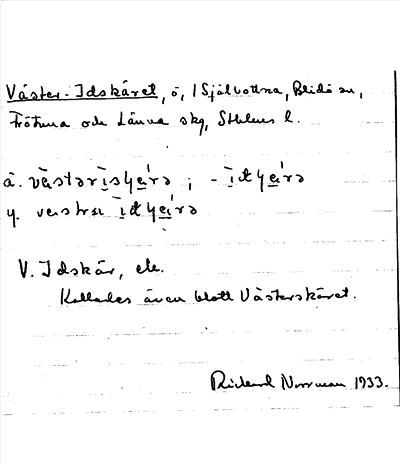 Väster-Idskäret, ö, i Själbottna, Blidö sn,
Frötuna och Länna skg, Sthlms l.
ä. västərisɥeˊrə ; - idɥeˊrə
y. verstra idɥeˊrə
V. Idskär, etc.
Kallades även blott Västerskäret.
Rickard Norrman 1933.